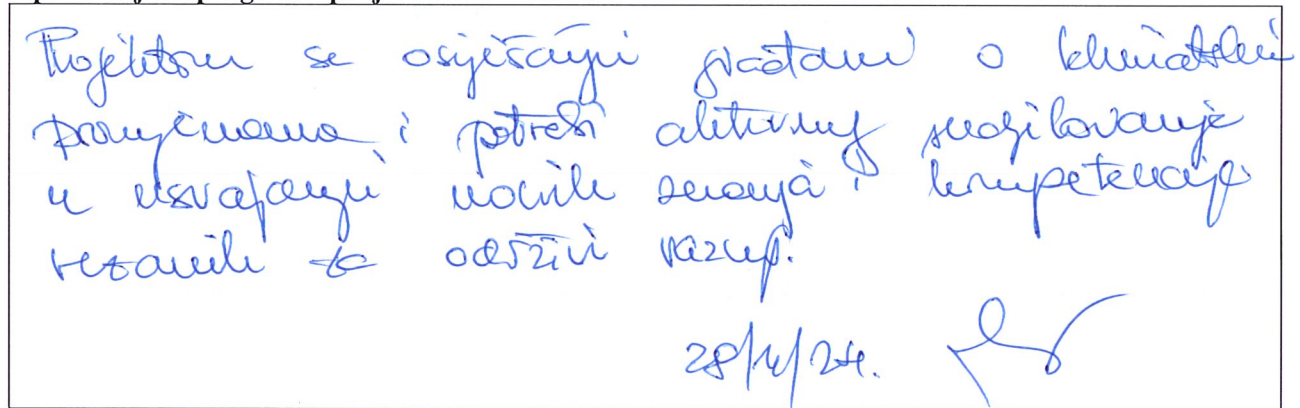 Projektom se osvješćuju građani o klimatskim
promjenama i potrebi aktivnog sudjelovanja
u usvajanju novih znanja i kompetencija
vezanih za održivi razvoj.
28/4/24.